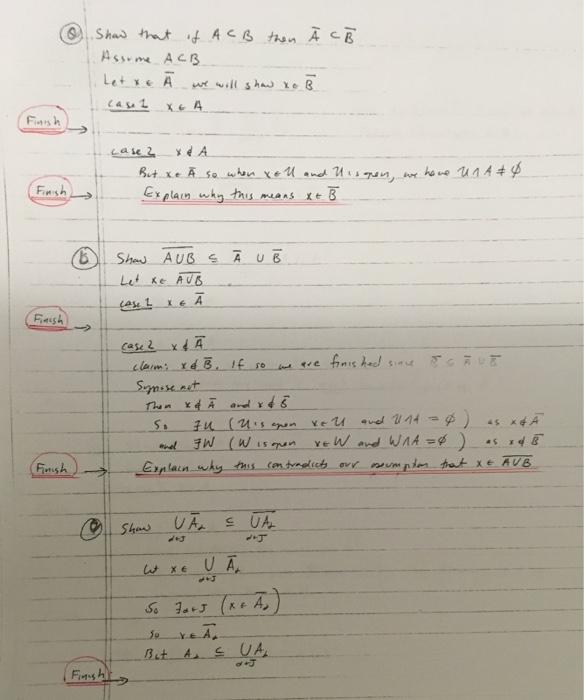 ⓐ Show that if A ⊂ B then A̅ ⊂ B̅
Assume A ⊂ B
Let x ∈ A̅ we will show x ∈ B̅
case 1 x ∈ A
Finish →
case 2 x ∉ A
But x ∈ A̅ so when x ∈ U and U is open, we have U ∩ A ≠ ∅
Finish → Explain why this means x ∈ B̅
ⓑ Show \overline{A∪B} ⊆ A̅ ∪ B̅
Let x ∈ \overline{A∪B}
case 1 x ∈ A̅
Finish →
case 2 x ∉ A̅
claim: x ∉ B̅. If so we are finished since B̅ ⊆ A̅ ∪ B̅
Suppose not
Then x ∉ A̅ and x ∉ B̅
So ∃U (U is open x ∈ U and U ∩ A = ∅) as x ∉ A̅
and ∃W (W is open x ∈ W and W ∩ A = ∅) as x ∉ B̅
Finish → Explain why this contradicts our assumption that x ∈ \overline{A∪B}
Show ∪_{α∈J} A̅_α ⊆ \overline{∪_{α∈J} A_α}
Let x ∈ ∪_{α∈J} A̅_α
So ∃α∈J (x ∈ A̅_α)
So x ∈ A̅_α
But A_α ⊆ ∪_{α∈J} A_α
Finish →